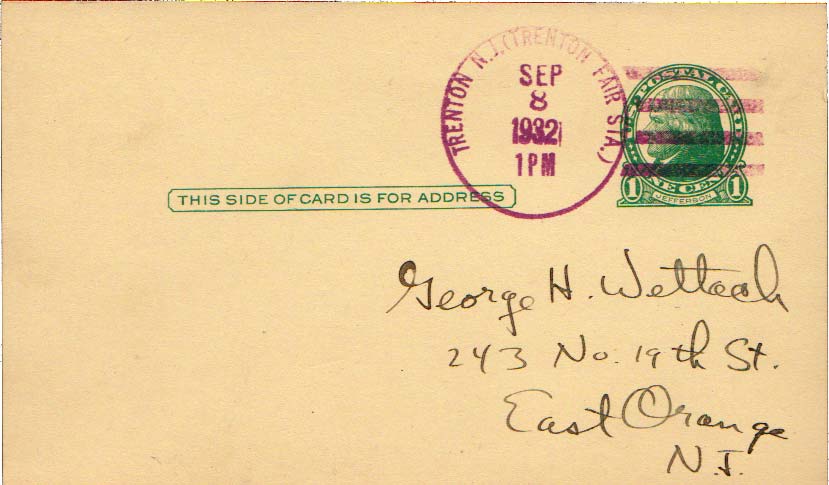 TRENTON N.J. (TRENTON FAIR STA.)
SEP
8
1932
1 PM
U.S. POSTAL CARD
1 ONE CENT 1
JEFFERSON
THIS SIDE OF CARD IS FOR ADDRESS
George H. Wettach
243 No. 19th St.
East Orange
N.J.